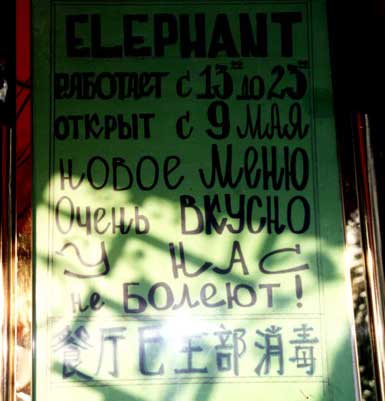 ELEPHANT
РАБОТАЕТ С 13⁰⁰ ДО 23⁰⁰
ОТКРЫТ С 9 МАЯ
НОВОЕ МЕНЮ
ОЧЕНЬ ВКУСНО
У НАС
не БОЛЕЮТ!
餐厅已全部消毒